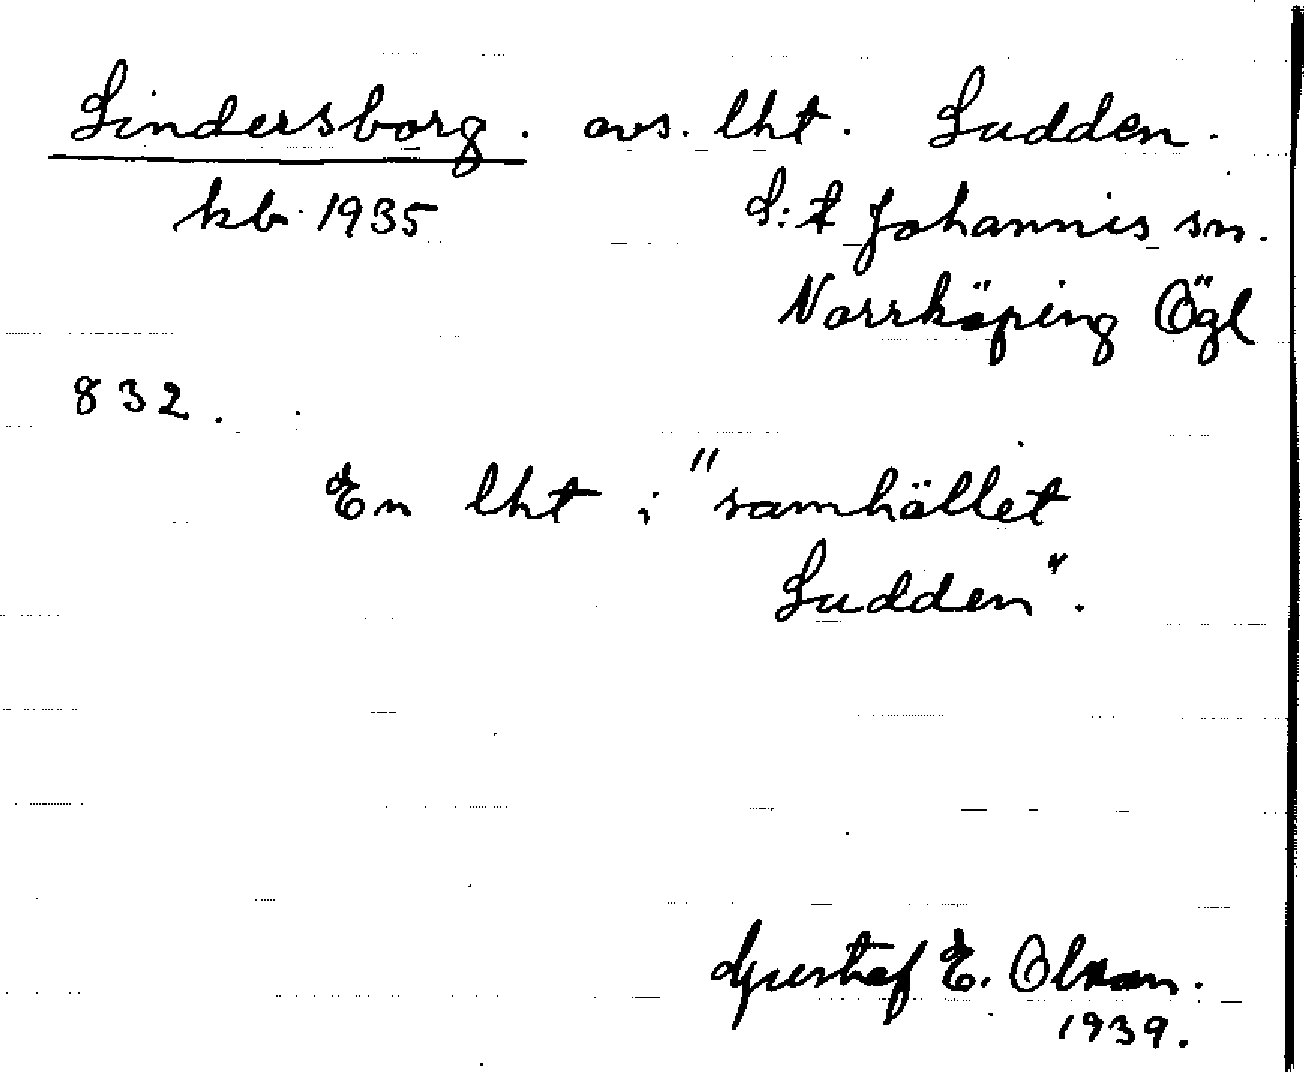 Lindersborg. avs. lht. Sudden.
kb. 1935 S:t Johannis sn.
Norrköping Ögl
832.
En lht i "samhället
Sudden".
Gustaf E. Olsson.
1939.